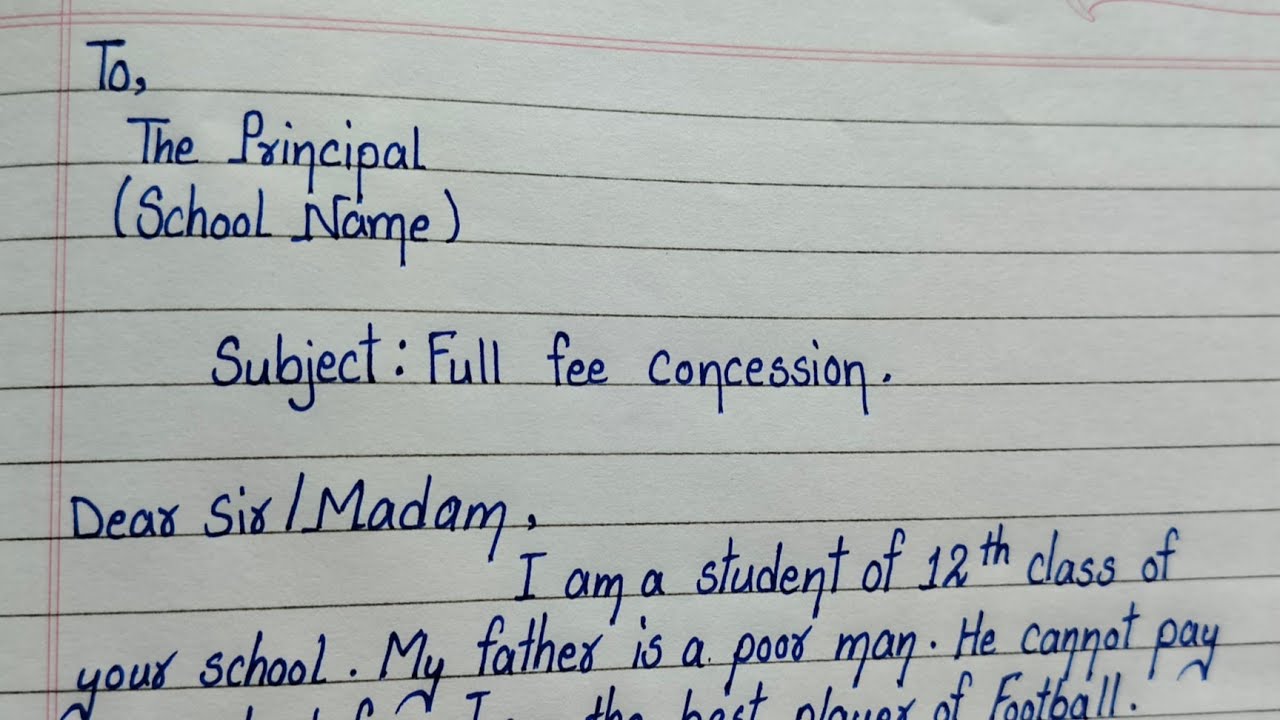 To,
The Principal
(School Name)
Subject: Full fee concession.
Dear Sir/Madam,
I am a student of 12th class of
your school. My father is a poor man. He cannot pay
I the best player of Football.